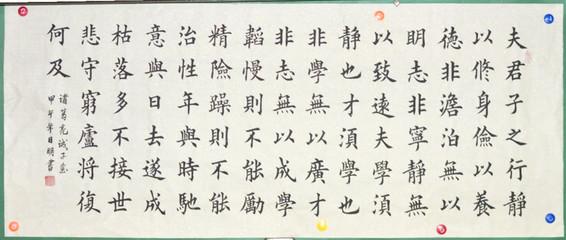 夫君子之行靜
以修身儉以養
德非澹泊無以
明志非寧靜無
以致遠夫學須
靜也才須學也
非學無以廣才
非志無以成學
韜慢則不能勵
精險躁則不能
治性年與時馳
意與日去遂成
枯落多不接世
悲守窮廬將復
何及
諸葛亮誡子
甲午年日明書